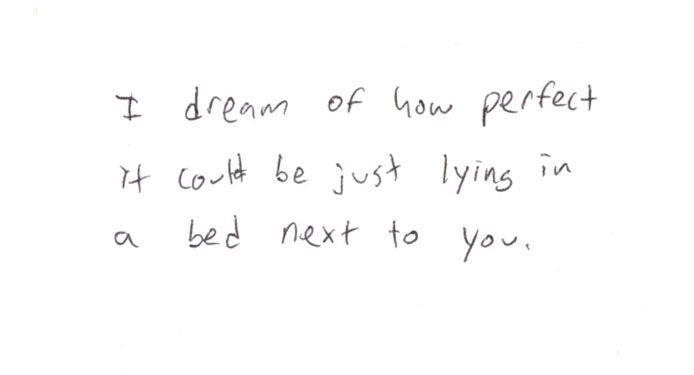 I dream of how perfect
it could be just lying in
a bed next to you.